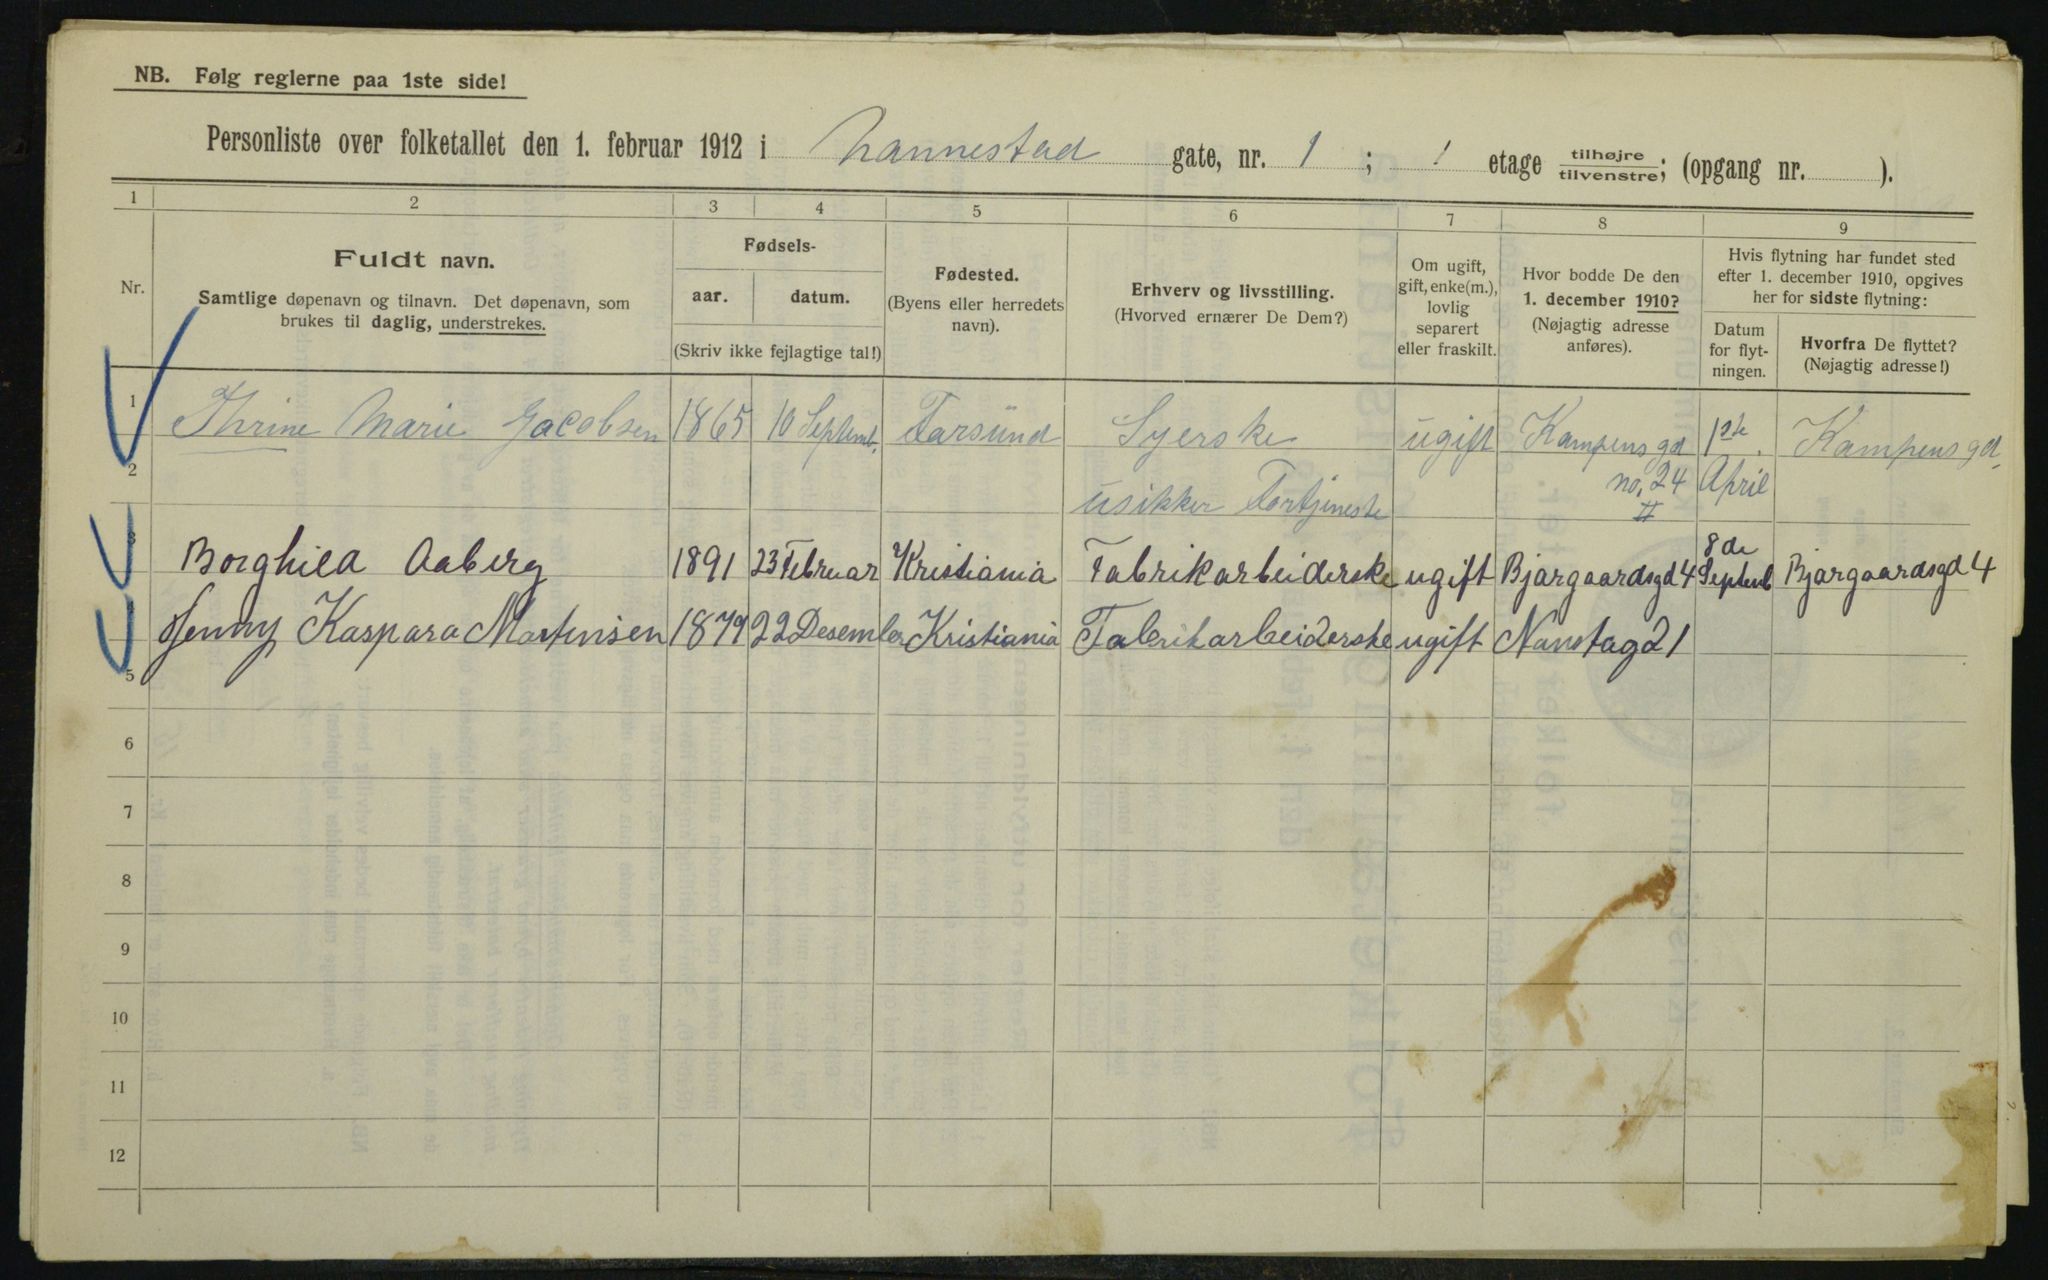 NB. Følg reglerne paa 1ste side!
Personliste over folketallet den 1. februar 1912 i Nannestad gate, nr. 1 ; 1 etage tilhøjre tilvenstre; (opgang nr. ).
1 2 3 4 5 6 7 8 9
Nr.
Fuldt navn.
Samtlige døpenavn og tilnavn. Det døpenavn, som
brukes til daglig, understrekes.
Fødsels-
aar. datum.
(Skriv ikke fejlagtige tal!)
Fødested.
(Byens eller herredets
navn).
Erhverv og livsstilling.
(Hvorved ernærer De Dem?)
Om ugift,
gift, enke(m.),
lovlig
separert
eller fraskilt.
Hvor bodde De den
1. december 1910?
(Nøjagtig adresse
anføres).
Hvis flytning har fundet sted
efter 1. december 1910, opgives
her for sidste flytning:
Datum
for flyt-
ningen.
Hvorfra De flyttet?
(Nøjagtig adresse!)
1 Thrine Marie Jacobsen 1865 10 Septemb. Farsund Syerske ugift Kampens gd 1ste Kampens gd.
2 usikker Fortjeneste no. 24 II April
3 Borghild Aaberg 1891 23 Februar Kristiania Fabrikarbeiderske ugift Bjørgaardsgd 4 8de Septemb Bjørgaardsgd 4
Jenny Kaspara Martinsen 1879 22 Desember Kristiania Fabrikarbeiderske ugift Nanstagd 21
5
6
7
8
9
10
11
12